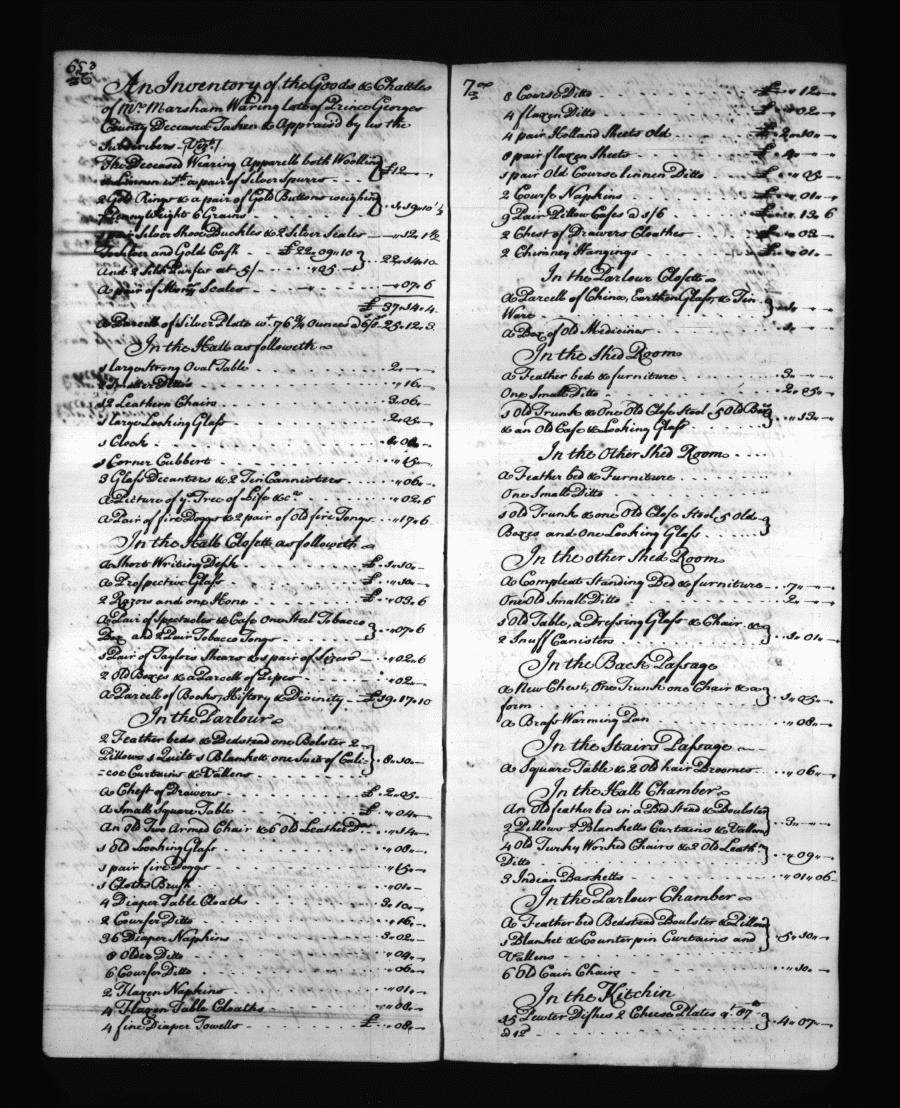 An Inventory of the Goods & Chattles
of Mr. Marsham Waring late of Prince Georges
County Deceased Taken & Apprais'd by us the
Subscribers
The Deceased Wearing Apparell both Woollin
& Linnen wth. a pair of Silver Spurrs £12
2 Gold Rings & a pair of Gold Buttons weighing
7 Penny Weight 6 Grains 1.19.10½
1 pair Silver Shoe Buckles & 2 Silver Seales
To Silver and Gold Cash £22.09.10
And 2 Silk Purses at 5/- 05 22.14.10
A pair of Mony Scales 07.6
£37.14.4
A Parcell of Silver Plate wt. 76 ¾ ounces @ 6/8 25.12.3
In the Hall as followeth
1 large Strong Oval Table 2
2 Smaller Ditto 16
12 Leathern Chairs 3.06
1 large Looking Glass 2.05
1 Clock
1 Corner Cubbert 15
3 Glass Decanters & 2 Tin Cannisters 06
A Picture of ye. Tree of Life &c 02.6
A Pair of fire Doggs & 2 pair of Old fire Tongs 17.6
In the Hall Closett as followeth
A Short Writing Desk £1.10
A Prospective Glass £ 10
2 Razors and one Hone £ 03.6
A Pair of Spectacles & Case One Steel Tobacco
Box and 2 Pair Tobacco Tongs 07.6
1 Pair of Taylors Shears & 1 pair of Sizers 02.6
2 Old Boxes & a Parcell of Pipes 02
A Parcell of Books, History & Divinity £19.17.10
In the Parlour
2 Feather beds & Bedstead one Bolster 2
Pillows 1 Quilt 1 Blankett one Suit of Cali-
=coe Curtains & Vallens 8.10
A Chest of Drawers £2.05
A Small Square Table £ 04
An Old Two Armed Chair & 6 Old Leather Do. 14
1 Old Looking Glass 08
1 pair fire Doggs 15
1 Cloths Brush 01
4 Diaper Table Cloaths 3.10
2 Courser Ditto 16
36 Diaper Napkins 3.02
8 Older Ditto 04
6 Courser Ditto 06
2 Flaxen Napkins 01
4 Flaxen Table Cloaths 08
4 fine Diaper Towells £ 08
8 Course Ditto £ 12
4 flaxen Ditto £ 02
4 pair Holland Sheets Old £ 2.10
8 pair flaxen Sheets £ 4
1 pair Old Course linnen Ditto £ 05
2 Course Napkins £ 01
9 Pair Pillow Cases @ 1/6 £ 13 6
2 Chest of Drawers Cloathes £ 03
2 Chimney Hangings £ 01
In the Parlour Closett
A Parcell of China, Earthen Glass, & Tin
Ware
A Box of Old Medicines 1
In the Shed Room
A Feather bed & furniture 3
One Small Ditto 2.05
1 Old Trunk & One Old Close Stool 5 Old Boxs
& an Old Case & Looking Glass 13
In the Other Shed Room
A Feather bed & Furniture
One Small Ditto
1 Old Trunk & one Old Close Stool 5 Old
Boxes and One Looking Glass
In the other Shed Room
A Compleat Standing Bed & furniture 7
One Old Small Ditto 2
1 Old Table, a Dressing Glass & Chair &
2 Snuff Canisters 1.01
In the Back Passage
A New Chest, One Trunk one Chair & a
form 1.05
A Brass Warming Pan 08
In the Stairs Passage
A Square Table & 2 Old hair Broomes 06
In the Hall Chamber
An Old feather bed in a Bed Stead & Boulster
2 Pillows 2 Blanketts Curtains & Vallens 3
4 Old Turky Worked Chairs & 2 Old Leathr.
Ditto 09
3 Indian Basketts 01 06
In the Parlour Chamber
A Feather bed Bedstead Boulster & Pillow
1 Blanket & Counterpin Curtains and
Vallens 5.10
6 Old Cain Chairs 10
In the Kitchin
15 Pewter Dishes 2 Cheese Plates qt. 87 lb
@ 12 4.07